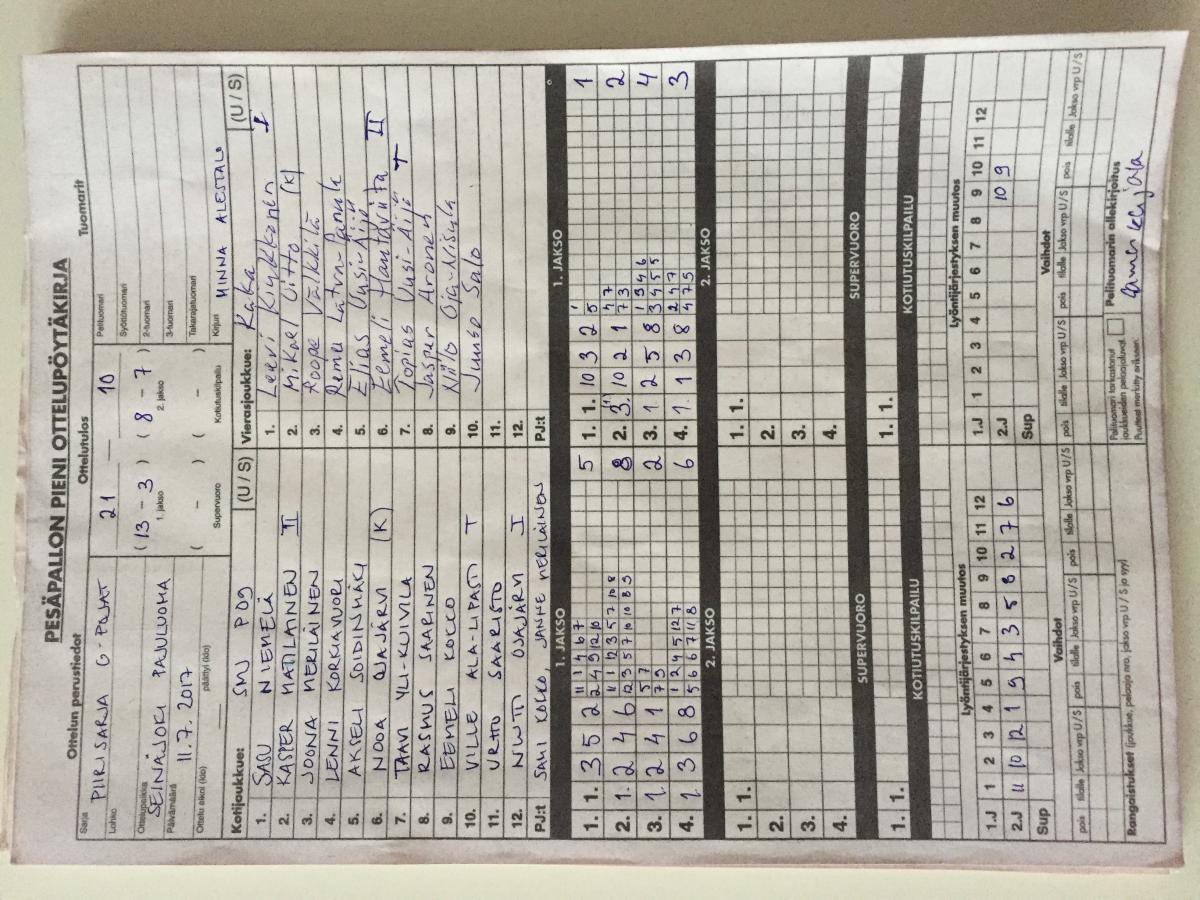 PESÄPALLON PIENI OTTELUPÖYTÄKIRJA
Ottelun perustiedot
Sarja PIIRISARJA G-POJAT
Lohko
Ottelupaikka SEINÄJOKI PAJULUOMA
Päivämäärä 11.7.2017
Ottelu alkoi (klo) päättyi (klo)
Ottelutulos
21 — 10
(13 - 3) (8 - 7)
1. jakso 2. jakso
( - ) ( - )
Supervuoro Kotiutuskilpailu
Tuomarit
Pelituomari
Syöttötuomari
2-tuomari
3-tuomari
Takarajatuomari
Kirjuri MINNA ALESTALO
Kotijoukkue: SMJ P09 (U / S)
1. SASU NIEMELÄ
2. KASPER MATILAINEN II
3. JOONA MERILÄINEN
4. LENNI KORKIAVUORI
5. AKSELI SOIDINMÄKI
6. NOOA OJAJÄRVI (K)
7. TAAVI YLI-KUIVILA
8. RASMUS SAARINEN
9. EEMELI KOKKO
10. VILLE ALA-LIPASTI T
11. URHO SAARISTO
12. OJAJÄRVI I
PJ:t SAMI KOKKO, JANNE MERILÄINEN
Vierasjoukkue: KaKa (U / S)
1. Leevi Kiukkonen I
2. Mikael Uitto (K)
3. Roope Välkkilä
4. Remu
5. Elias Uusi-Äijö
6. Eemeli Hautaviita II
7. Topias Uusi-Äijö T
8. Jasper Aronen
9. Niilo Oja-Nisula
10. Juuso Salo
11.
12.
PJ:t
1. JAKSO
1. 1. 3 5 2 5
2. 1. 2 4 6 8
3. 1. 2 4 1 2
4. 1. 3 6 8 6
2. JAKSO
1. 1.
2.
3.
4.
SUPERVUORO
1. 1.
KOTIUTUSKILPAILU
1. JAKSO
1. 1. 10 3 2 1
2. 3. 10 2 1 2
3. 1. 2 5 8 4
4. 1. 1 3 8 3
2. JAKSO
1. 1.
2.
3.
4.
SUPERVUORO
1. 1.
KOTIUTUSKILPAILU
Lyöntijärjestyksen muutos
1.J 1 2 3 4 5 6 7 8 9 10 11 12
2.J 11 10 12 1 9 4 3 5 8 2 7 6
Sup
Vaihdot
pois tilalle Jakso vrp U/S pois tilalle Jakso vrp U/S pois tilalle Jakso vrp U/S
Lyöntijärjestyksen muutos
1.J 1 2 3 4 5 6 7 8 9 10 11 12
2.J 10 9
Sup
Vaihdot
pois tilalle Jakso vrp U/S pois tilalle Jakso vrp U/S pois tilalle Jakso vrp U/S
Rangaistukset (joukkue, pelaaja nro, jakso vrp U / S ja syy)
Pelituomari tarkastanut joukkueiden pelaajaluvat. Puutteet merkitty erikseen.
Pelituomarin allekirjoitus